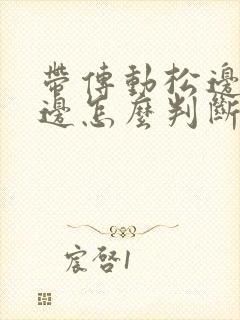 帶傳動松邊
邊怎麼判斷
宸啓1